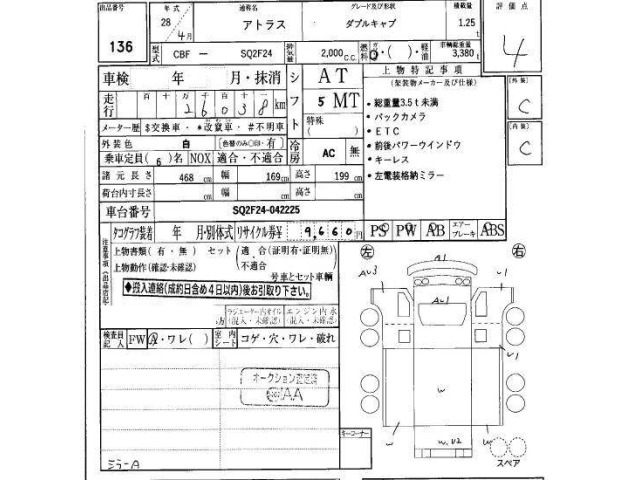 出品番号 年式 通称名 グレード及び形状 積載量 評価点
136 28年 4月 アトラス ダブルキャブ 1.25 t 4
型式 CBF — SQ2F24 排気量 2,000 C.C. 燃料 ・( )・軽油 車輌総重量 3,380 t
車検 年 月・抹消 シフト AT 上物特記事項 外装
走行 百 十 万 千 百 十 一 km 5 MT (架装物メーカー及び仕様) C
26038
メーター歴 $交換車・*改竄車・#不明車 特殊 ( ) ・総重量3.5t未満 内装
外装色 白 (色替のみ○印・有) 冷房 AC 無 ・バックカメラ C
乗車定員(6)名 NOX 適合・不適合 ・ETC
諸元長さ 468 cm 幅 169 cm 高さ 199 cm ・前後パワーウインドウ
荷台内寸長さ cm 幅 cm 高さ cm ・キーレス
・左電装格納ミラー
車台番号 SQ2F24-042225
タコグラフ装着 年 月・別体式 リサイクル券¥ 9,660円 PS PW AB エアーブレーキ ABS
注意事項(出品店記入)
上物書類(有・無) セット(適合(証明有・証明無)・不適合)
上物動作(確認・未確認) 号車とセット車輌
◆搬入連絡(成約日含め4日以内)後お引取り下さい。
ラジエーター内オイル(混入・未確認) エンジン内水(混入・未確認)
検査員記入 FW A・ワレ( ) 室内シート コゲ・穴・ワレ・破れ
オークション認定済
AA
ミラーA
キーコーナー
左 右
A1
AU3
AU1
U1
U1
W
W
W.U2
スペア